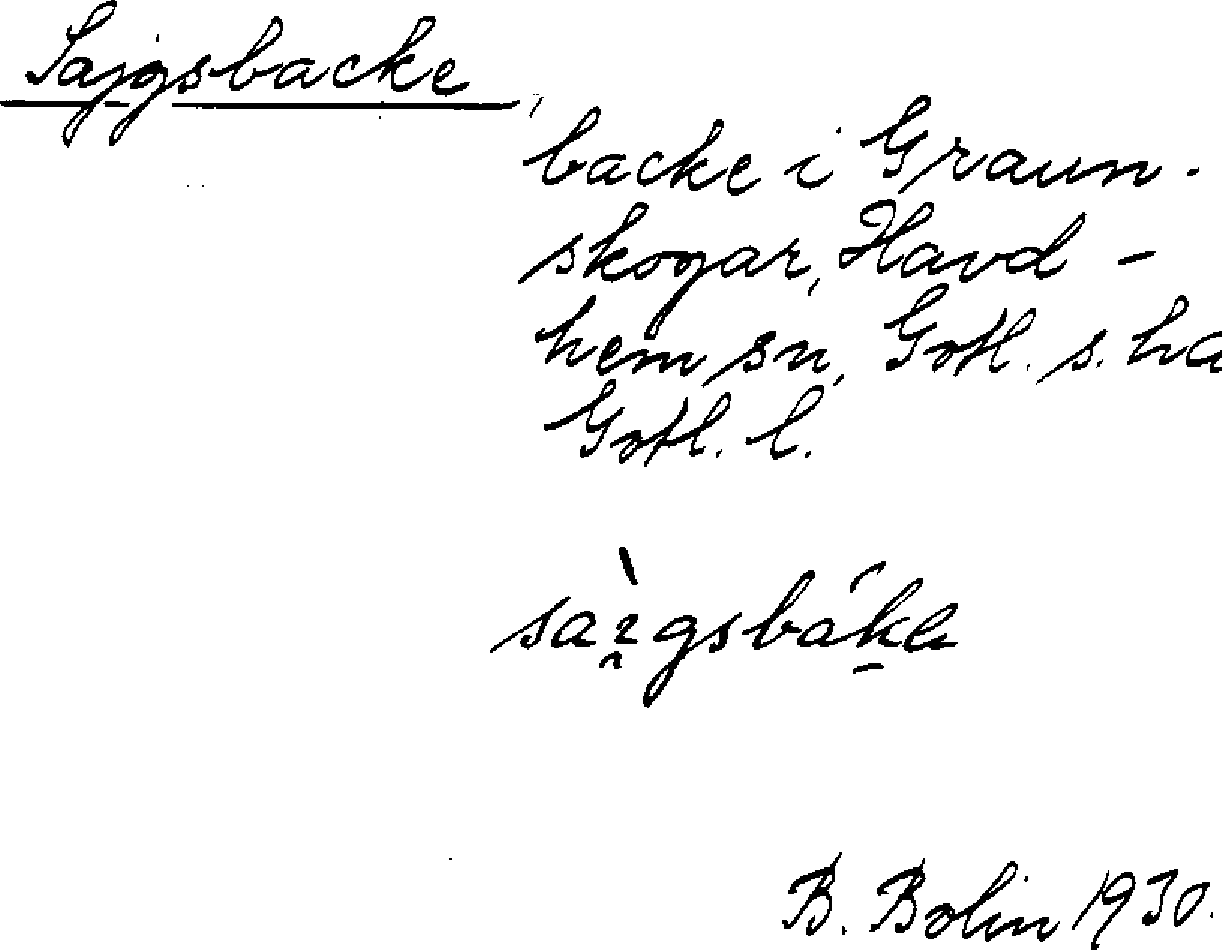 Sajgsbacke,
backe i Graun-
skogar, Havd-
hem sn, Gotl. s. hd
Gotl. l.
B. Bolin 1930.